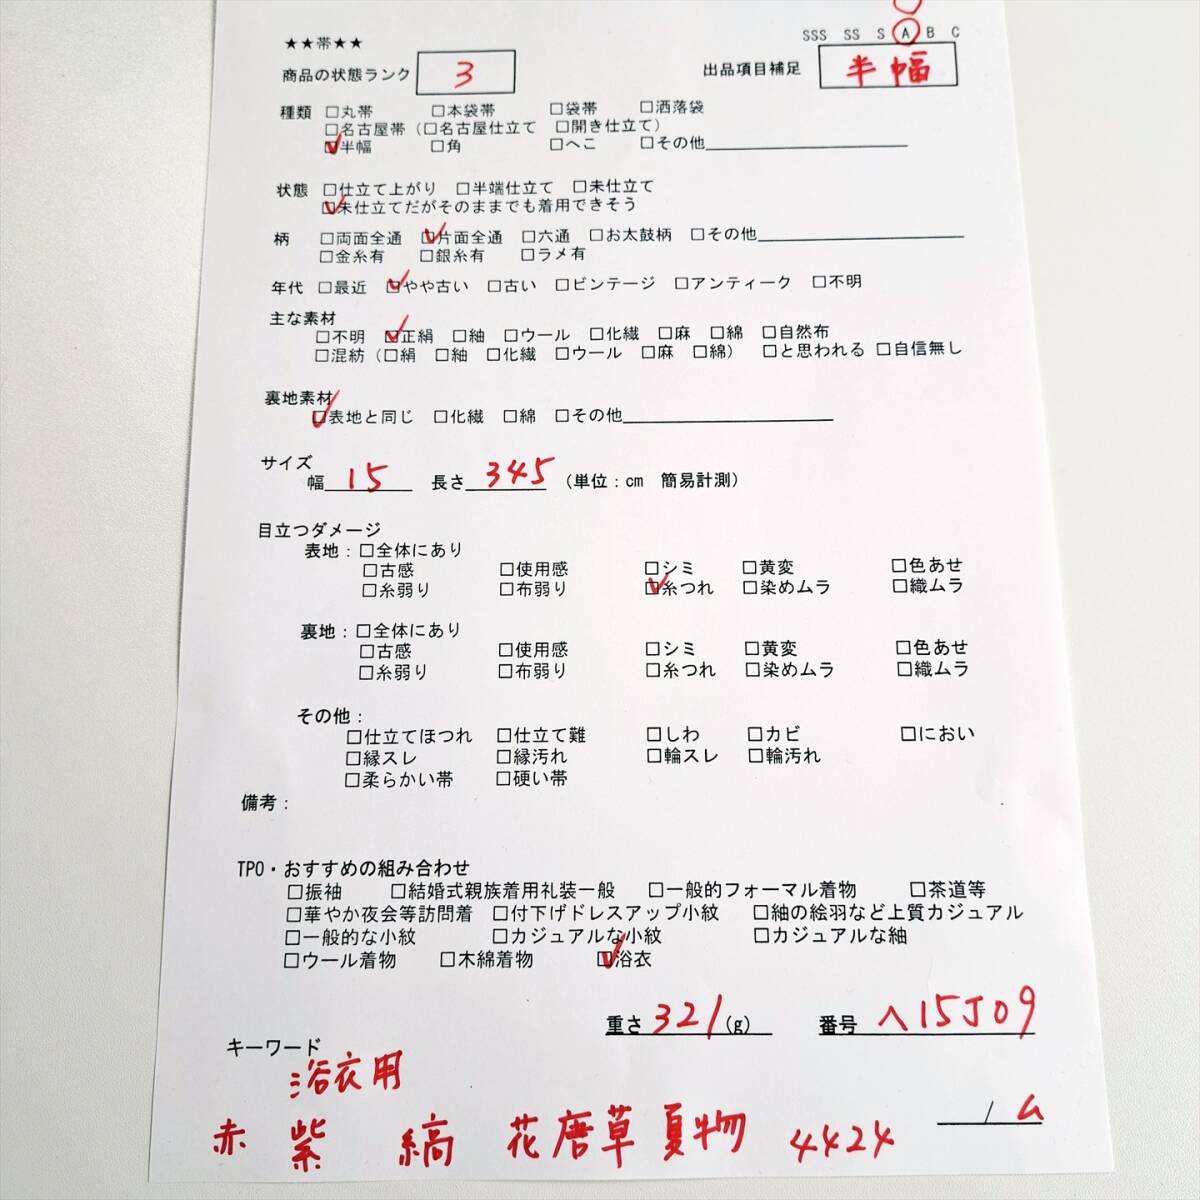 SSS SS S A B C
★★帯★★
商品の状態ランク 3 出品項目補足 半幅
種類 □丸帯 □本袋帯 □袋帯 □洒落袋
□名古屋帯（□名古屋仕立て □開き仕立て）
☑半幅 □角 □へこ □その他
状態 □仕立て上がり □半端仕立て □未仕立て
☑未仕立てだがそのままでも着用できそう
柄 □両面全通 ☑片面全通 □六通 □お太鼓柄 □その他
□金糸有 □銀糸有 □ラメ有
年代 □最近 ☑やや古い □古い □ビンテージ □アンティーク □不明
主な素材
□不明 ☑正絹 □紬 □ウール □化繊 □麻 □綿 □自然布
□混紡（□絹 □紬 □化繊 □ウール □麻 □綿） □と思われる □自信無し
裏地素材
☑表地と同じ □化繊 □綿 □その他
サイズ
幅 15 長さ 345 （単位：cm 簡易計測）
目立つダメージ
表地：□全体にあり
□古感 □使用感 □シミ □黄変 □色あせ
□糸弱り □布弱り ☑糸つれ □染めムラ □織ムラ
裏地：□全体にあり
□古感 □使用感 □シミ □黄変 □色あせ
□糸弱り □布弱り □糸つれ □染めムラ □織ムラ
その他：
□仕立てほつれ □仕立て難 □しわ □カビ □におい
□縁スレ □縁汚れ □輪スレ □輪汚れ
□柔らかい帯 □硬い帯
備考：
TPO・おすすめの組み合わせ
□振袖 □結婚式親族着用礼装一般 □一般的フォーマル着物 □茶道等
□華やか夜会等訪問着 □付下げドレスアップ小紋 □紬の絵羽など上質カジュアル
□一般的な小紋 □カジュアルな小紋 □カジュアルな紬
□ウール着物 □木綿着物 ☑浴衣
重さ 321 (g) 番号 ヘ15J09
キーワード
浴衣用
赤 紫 縞 花唐草 夏物 4424
/ム